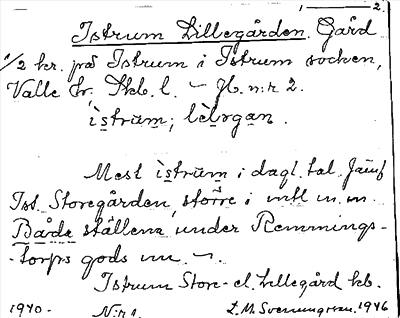 1 — 2.
Istrum Lillegården. Gård
1/2 kr. på Istrum i Istrum socken,
Valle hr, Skb. l. — Jb. n:r 2.
ìstrùm; lèlrgan.
Mest ìstrùm i dagl. tal. Jämf
Ist. Storegården, större i mtl m. m.
Båda ställena under Remmings-
-torps gods nu —.
Istrum Store- el. Lillegård kb.
1940. N:r 1. 1946